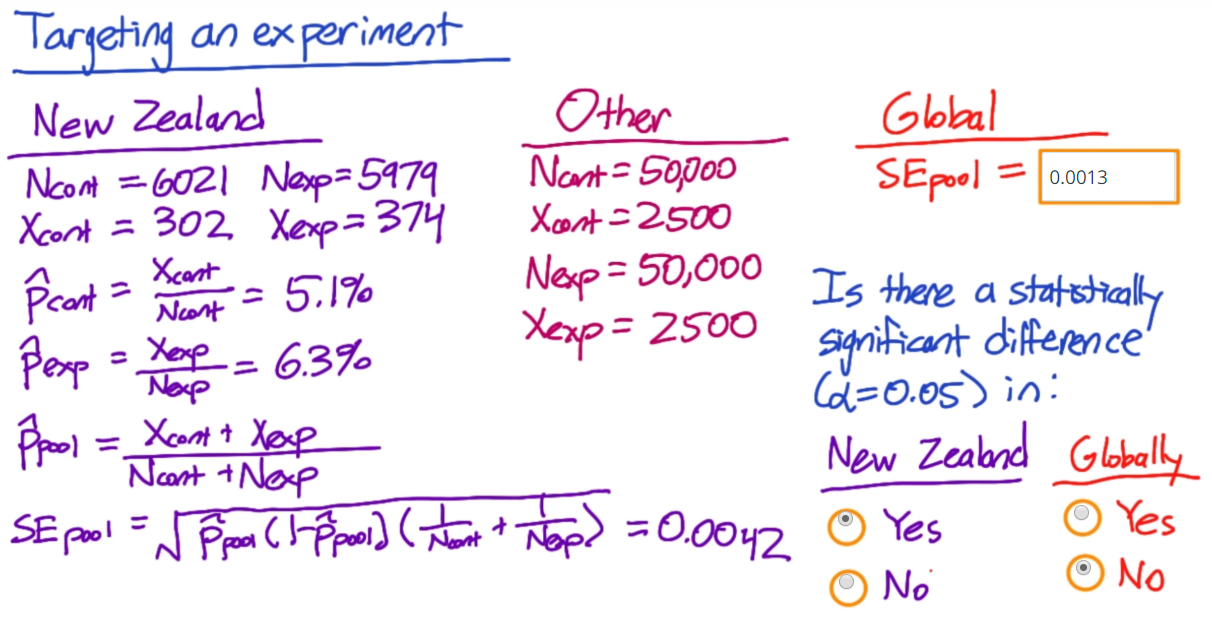 Targeting an experiment
New Zealand
Ncont = 6021 Nexp = 5979
Xcont = 302 Xexp = 374
p̂cont = Xcont / Ncont = 5.1%
p̂exp = Xexp / Nexp = 6.3%
p̂pool = Xcont + Xexp / Ncont + Nexp
SEpool = √p̂pool (1-p̂pool) (1/Ncont + 1/Nexp) = 0.0042
Other
Ncont = 50,000
Xcont = 2500
Nexp = 50,000
Xexp = 2500
Global
SEpool = 0.0013
Is there a statistically
significant difference
(α=0.05) in:
New Zealand Globally
Yes Yes
No No